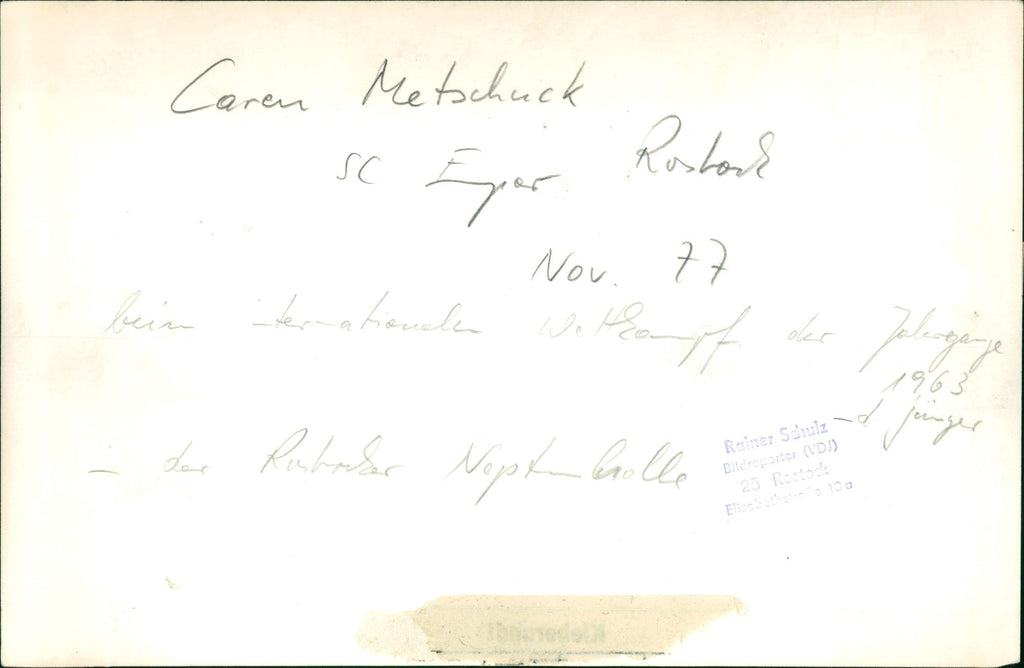 Caren Metschuck
SC Empor Rostock
Nov. 77
beim internationalen Wettkampf der Jahrgänge
1963
und jünger
in der Rostocker Neptunhalle
Rainer Schulz
Bildreporter (VDJ)
25 Rostock
Elisabethstraße 10a
Kleberand!